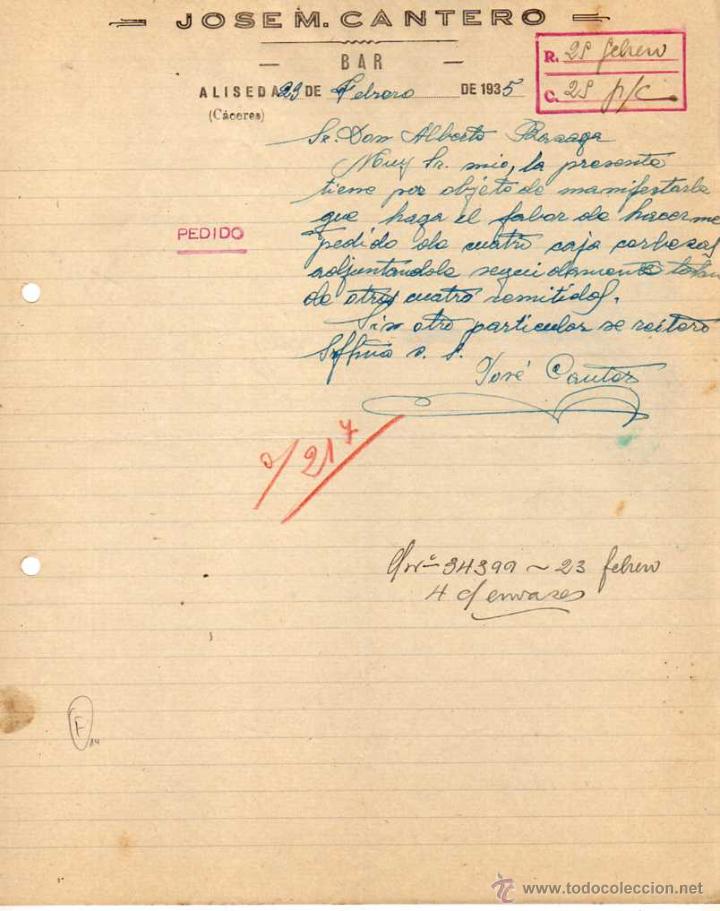 JOSE M. CANTERO
BAR
ALISEDA 23 DE Febrero DE 1935
(Cáceres)
R. 25 febrero
C. 25 p/c
Sr. Don Alberto
Muy Sr. mio, la presente
tiene por objeto de manifestarle
que haga el fabor de hacerme
PEDIDO
pedido de cuatro caja cerbesas
adjuntandole seguidamente
de otras cuatro remitidas.
Sin otro particular se reitera
s. s.
José Cantero
217
34399 ~ 23 febrero
4 c/ envases
F
14
www.todocoleccion.net